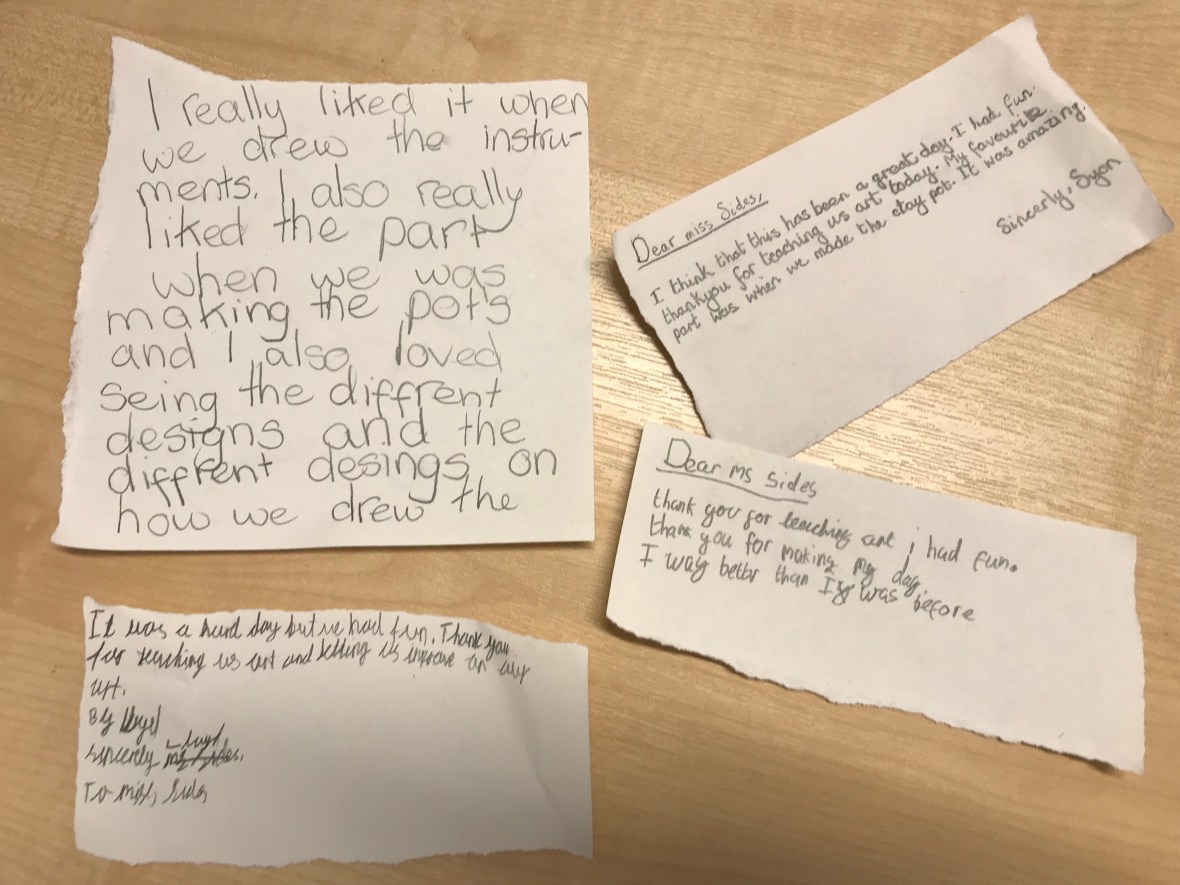 I really liked it when
we drew the instru-
ments. I also really
liked the part
when we was
making the pot's
and I also loved
seing the diffrent
designs and the
diffrent desings on
how we drew the
Dear miss Sides,
I think that this has been a great day. I had fun.
thankyou for teaching us art today. My favourite
part was when we made the clay pot. It was amazing.
Sincerly, Syon
Dear ms Sides
thank you for teaching art i had fun.
thank you for making my day.
I way bettr than I was before
It was a hard day but we had fun. Thank you
for teaching us art and letting us improve on our
art.
By
sincerly
To miss, Sides